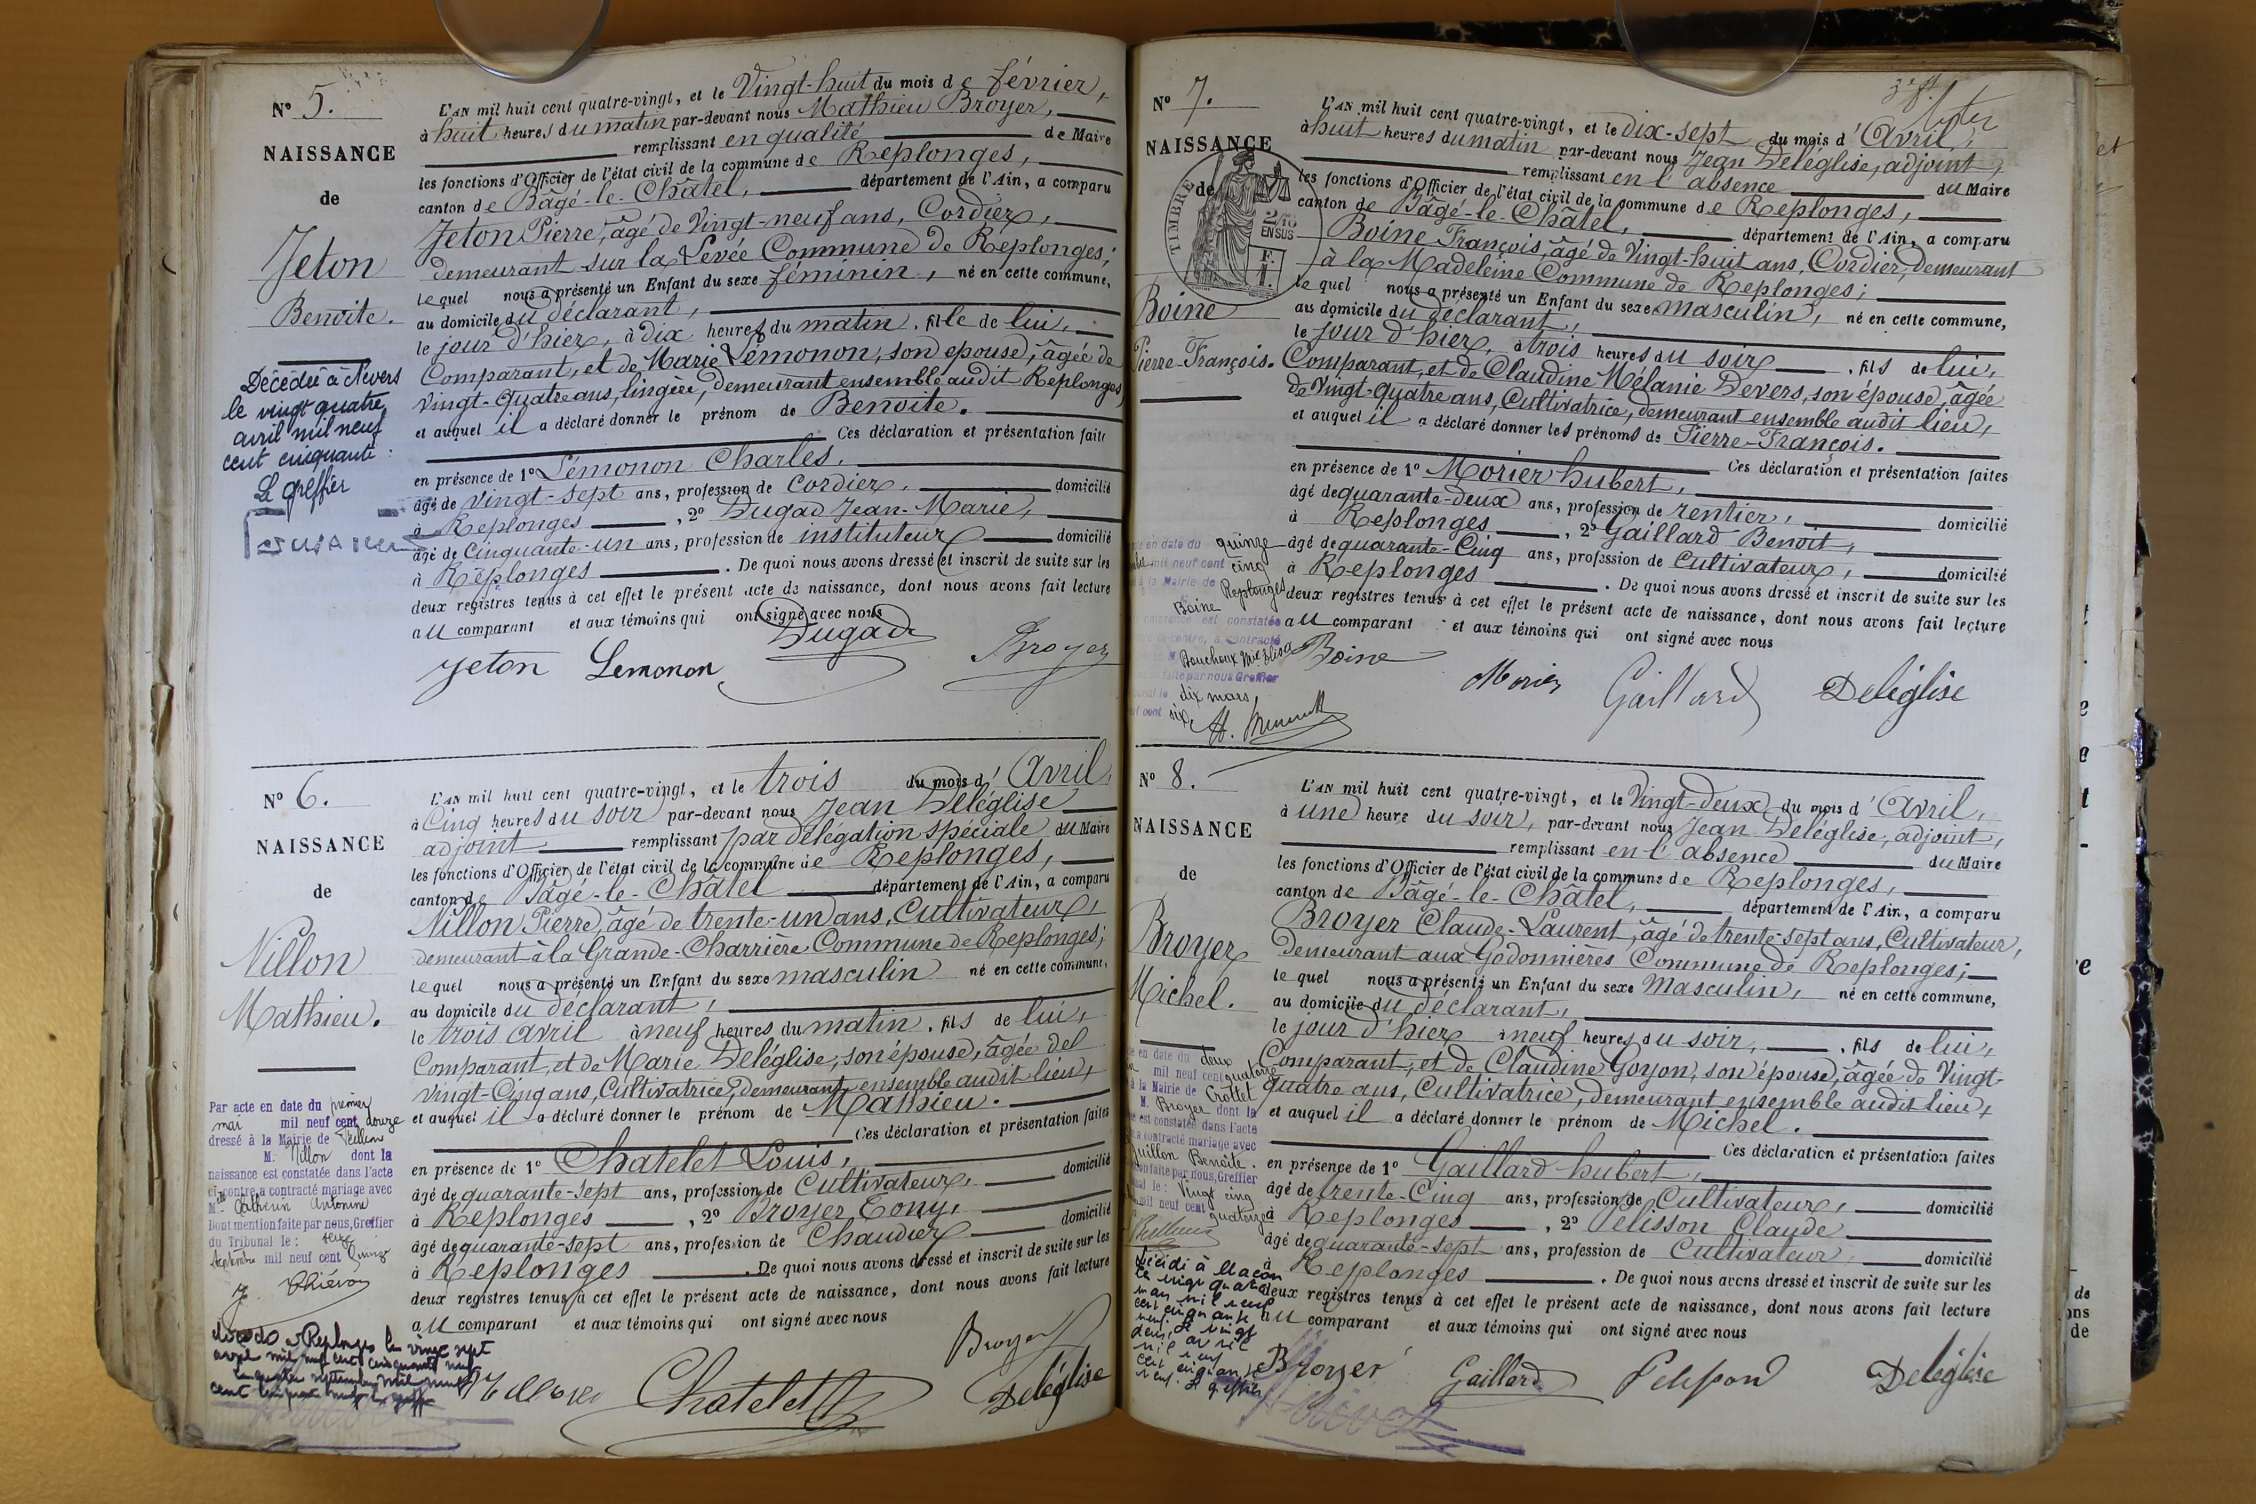 N° 5.
NAISSANCE
de
Jeton
Benoite.
Décédée à Nevers
le vingt quatre
avril mil neuf
cent cinquante
Le Greffier
L'AN mil huit cent quatre-vingt, et le Vingt-huit du mois de février,
à huit heures du matin par-devant nous Mathieu Broyer,
remplissant en qualité de Maire
les fonctions d'Officier de l'état civil de la commune de Replonges,
canton de Bâgé-le-Châtel, département de l'Ain, a comparu
Jeton Pierre, âgé de Vingt-neuf ans, Cordier,
demeurant sur la Levée Commune de Replonges;
lequel nous a présenté un Enfant du sexe féminin, né en cette commune,
au domicile du déclarant,
le jour d'hier, à dix heures du matin. fille de lui,
Comparant, et de Marie Lémonon, son épouse, âgée de
vingt-quatre ans, lingère, demeurant ensemble audit Replonges
et auquel il a déclaré donner le prénom de Benoite.
Ces déclaration et présentation faites
en présence de 1° Lémonon Charles,
âgé de vingt-sept ans, profession de cordier, domicilié
à Replonges, 2° Dugad Jean-Marie,
âgé de cinquante-un ans, profession de instituteur domicilié
à Replonges. De quoi nous avons dressé et inscrit de suite sur les
deux registres tenus à cet effet le présent acte de naissance, dont nous avons fait lecture
au comparant et aux témoins qui ont signé avec nous
Jeton Lemonon Dugad Broyer
N° 6.
NAISSANCE
de
Nillon
Mathieu.
Par acte en date du premier
mai mil neuf cent douze
dressé à la Mairie de
M. Nillon dont la
naissance est constatée dans l'acte
ci-contre a contracté mariage avec
Mlle Catherin Antonine
Dont mention faite par nous, Greffier
du Tribunal le: seize
Septembre mil neuf cent quinze
décédé à Replonges le vingt sept
avril mil neuf cent cinquante neuf
le quatre septembre mil neuf
cent cinquante neuf le greffier
L'AN mil huit cent quatre-vingt, et le trois du mois d'Avril,
à Cinq heures du soir par-devant nous Jean Deléglise
adjoint, remplissant par délégation spéciale du Maire
les fonctions d'Officier de l'état civil de la commune de Replonges,
canton de Bâgé-le-Châtel département de l'Ain, a comparu
Nillon Pierre, âgé de trente-un ans, Cultivateur,
demeurant à la Grande-Charrière Commune de Replonges;
lequel nous a présenté un Enfant du sexe masculin né en cette commune,
au domicile du déclarant,
le trois avril à neuf heures du matin. fils de lui,
Comparant, et de Marie Deléglise, son épouse, âgée de
vingt-Cinq ans, Cultivatrice, demeurant ensemble audit lieu,
et auquel il a déclaré donner le prénom de Mathieu.
Ces déclaration et présentation faites
en présence de 1° Chatelet Louis,
âgé de quarante-sept ans, profession de Cultivateur, domicilié
à Replonges, 2° Broyer Tony,
âgé de quarante-sept ans, profession de Chaudier domicilié
à Replonges. De quoi nous avons dressé et inscrit de suite sur les
deux registres tenus à cet effet le présent acte de naissance, dont nous avons fait lecture
au comparant et aux témoins qui ont signé avec nous
Broyer
Nillon Chatelet Deléglise
N° 7.
NAISSANCE
de
TIMBRE
2/10
EN SUS
F.
1.
Boine
Pierre-François.
en date du quinze
mil neuf cent cinq
à la Mairie de Replonges
Boine
naissance est constatée
ci-contre, a contracté
Bouchoux Marie Elisa
faite par nous Greffier
dix mars
cent six
L'AN mil huit cent quatre-vingt, et le dix-sept du mois d'Avril,
à huit heures du matin par-devant nous Jean Deléglise, adjoint,
remplissant en l'absence du Maire
les fonctions d'Officier de l'état civil de la commune de Replonges,
canton de Bâgé-le-Châtel, département de l'Ain, a comparu
Boine François, âgé de Vingt-huit ans, Cordier, demeurant
à la Madeleine Commune de Replonges;
lequel nous a présenté un Enfant du sexe masculin, né en cette commune,
au domicile du déclarant,
le jour d'hier, à trois heures du soir. fils de lui,
Comparant, et de Claudine Mélanie Devers, son épouse, âgée
de Vingt-quatre ans, Cultivatrice, demeurant ensemble audit lieu,
et auquel il a déclaré donner les prénoms de Pierre-François.
Ces déclaration et présentation faites
en présence de 1° Morier hubert,
âgé de quarante-deux ans, profession de rentier, domicilié
à Replonges, 2° Gaillard Benoit,
âgé de quarante-Cinq ans, profession de Cultivateur, domicilié
à Replonges. De quoi nous avons dressé et inscrit de suite sur les
deux registres tenus à cet effet le présent acte de naissance, dont nous avons fait lecture
au comparant et aux témoins qui ont signé avec nous
Boine Morier Gaillard Deléglise
N° 8.
NAISSANCE
de
Broyer
Michel.
en date du deux
mil neuf cent quatorze
à la Mairie de Crottet
M. Broyer dont la
est constatée dans l'acte
a contracté mariage avec
Guillon Benoite.
faite par nous, Greffier
le: Vingt cinq
mil neuf cent quatorze
Décédé à Macon
le vingt quatre
mars mil neuf
cent cinquante
neuf. Le vingt
deux avril
mil neuf
cent cinquante
neuf. Le greffier
L'AN mil huit cent quatre-vingt, et le Vingt-deux du mois d'Avril,
à une heure du soir, par-devant nous Jean Deléglise, adjoint,
remplissant en l'absence du Maire
les fonctions d'Officier de l'état civil de la commune de Replonges,
canton de Bâgé-le-Châtel, département de l'Ain, a comparu
Broyer Claude-Laurent, âgé de trente-sept ans, Cultivateur,
demeurant aux Godonnières Commune de Replonges;
lequel nous a présenté un Enfant du sexe Masculin, né en cette commune,
au domicile du déclarant,
le jour d'hier à neuf heures du soir,. fils de lui,
Comparant, et de Claudine Goyon, son épouse, âgée de Vingt-
quatre ans, Cultivatrice, demeurant ensemble audit lieu,
et auquel il a déclaré donner le prénom de Michel.
Ces déclaration et présentation faites
en présence de 1° Gaillard hubert,
âgé de trente-Cinq ans, profession de Cultivateur, domicilié
à Replonges, 2° Pelisson Claude
âgé de quarante-sept ans, profession de Cultivateur, domicilié
à Replonges. De quoi nous avons dressé et inscrit de suite sur les
deux registres tenus à cet effet le présent acte de naissance, dont nous avons fait lecture
au comparant et aux témoins qui ont signé avec nous
Broyer Gaillard Pelisson Deléglise